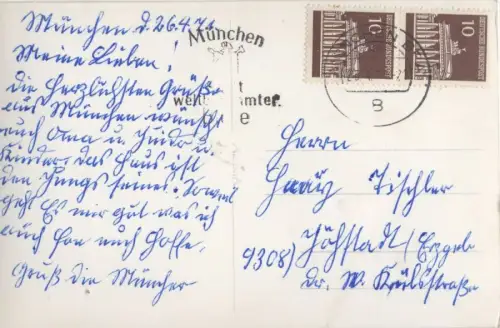 München d. 26.4.71
Meine Lieben!
die herzlichsten Grüße
aus München wünscht
auch Oma u.
Kinder. das Haus ist
den Jungs seines. Soweit
gehts Es mir gut was ich
auch von euch hoffe.
Gruß die Münchner
München
weltberühmter
10
DEUTSCHE BUNDESPOST
10
DEUTSCHE BUNDESPOST
8
Herrn
Tischler
9308) Jöhstadt/Erzgeb
dr. W. Külzstraße